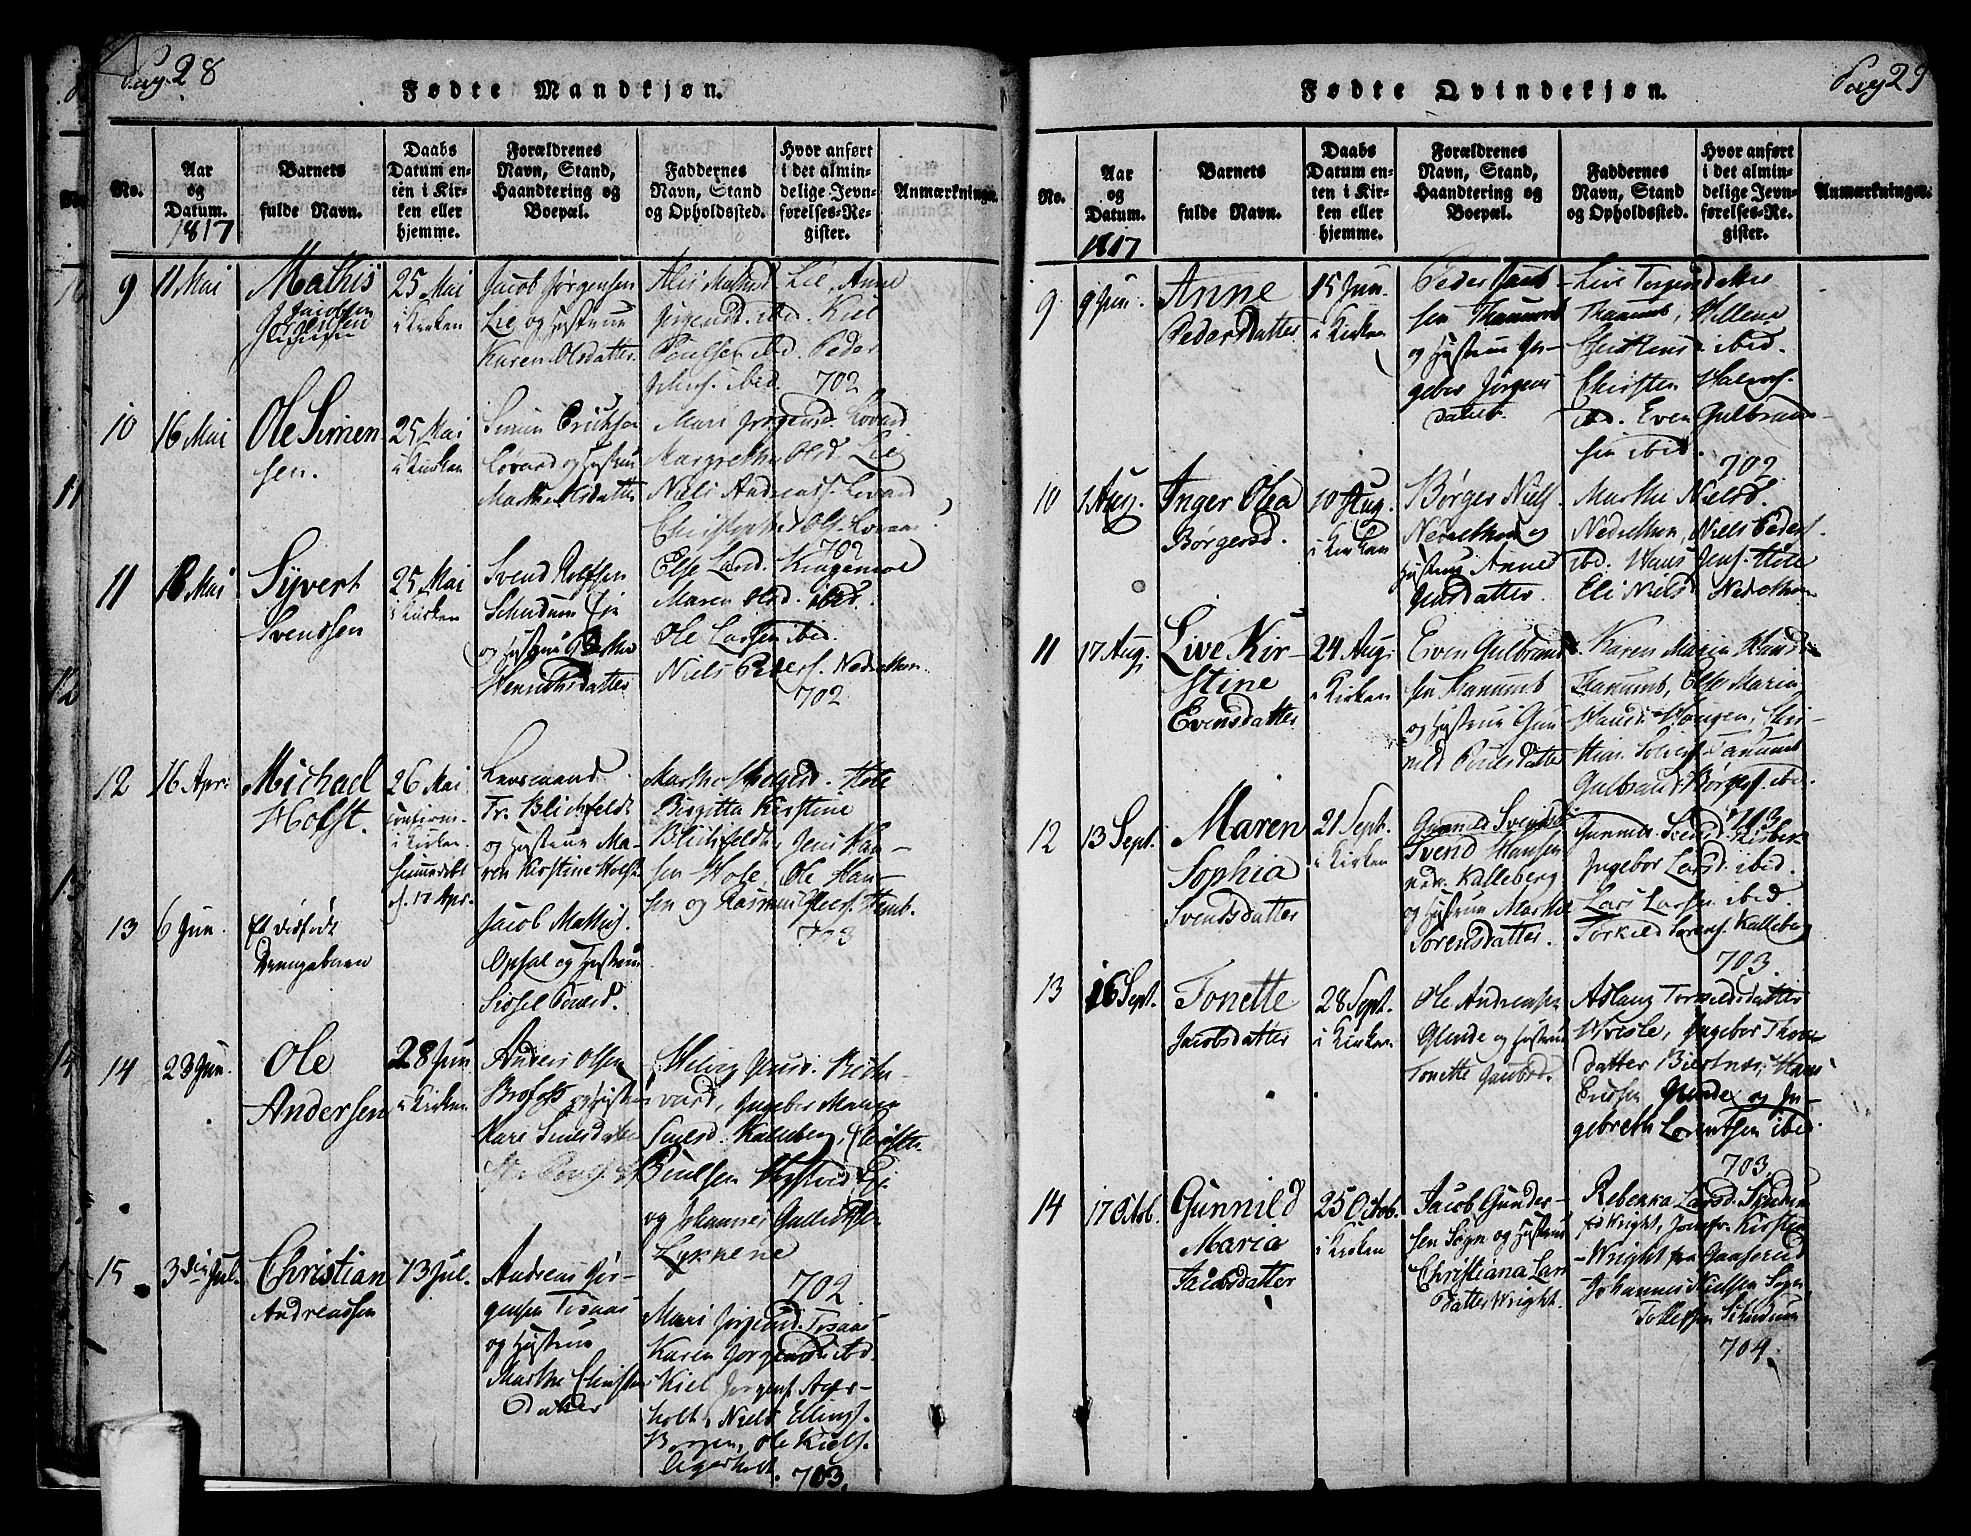 Pag. 28
Fødte Mandkjøn.
No.
Aar og Datum.
1817
Barnets fulde Navn.
Daabs Datum enten i Kirken eller hjemme.
Forældrenes Navn, Stand, Haandtering og Boepæl.
Faddernes Navn, Stand og Opholdssted.
Hvor anført i det almindelige Jevnførelses-Register.
Anmærkninger.
9
11 Mai
Mathis
Jacobsen
25 Mai
i Kirken
Jacob Jørgensen
Lie og Hustrue
Karen Olsdatter
Lie, Anne
ibd. Kiel
Poulsen ibd. Peder
ibid
702
10
16 Mai
Ole Simen
sen.
25 Mai
i Kirken
Simen Erichsen
Løvard og Hustrue
Marthe Olsdatter
Mari Jørgensd. Lovard
Margrethe Olsd. Lie
Niels Andreass. Lovard
Christopher Ols. Lovar
702
11
18 Mai
Syvert
Svenssen
25 Mai
i Kirken
Svend Rolfsen
Schudum Eie
og Hustrue
Henrichsdatter
Else Larsd.
Maren Olsd. ibid.
Ole Larssen ibid.
Niels Peders. Nedrethon
702
12
16 Apr.
Michael
Holst.
26 Mai
confirm.
i Kirken
hiemmedøbt
d. 17 Apr.
Lensmand
Fr. Blichfeldt
og Hustrue Ma-
ren Kirstine Holst
Hole
Birgitta Kirstine
Blichfeldt, Jens Han-
sen Hole, Ole Han-
sen og Rasmus
703
13
6 Jun.
Et dødfødt
Drengebarn
Jacob Mathis.
Opsal og Hustrue
Sissel Poulsd.
14
23 Jun.
Ole
Andersen
28 Jun
i Kirken
Anders Olsen
og Hustrue
Kari
Helvig Jensd.
vard, Ingeber Maria
Kalleberg, Christen
Poulsen
og Johannes
Lyknene
702
15
3die Jul.
Christian
Andreassen
13 Jul.
Andreas Jør-
gensen Tisaas
og Hustrue
Marthe Christens
datter
Mari Jørgensd. Tisaas
Karen Jørgensd. ibd.
Kiel Jørgens. Ager-
holt, Niels Ellings.
Borgen, Ole Kiels.
Agerholt.
703.
Pag 29
Fødte Qvindekjøn.
No.
Aar og Datum.
1817
Barnets fulde Navn.
Daabs Datum enten i Kirken eller hjemme.
Forældrenes Navn, Stand, Haandtering og Boepæl.
Faddernes Navn, Stand og Opholdssted.
Hvor anført i det almindelige Jevnførelses-Register.
Anmærkninger.
9
9 Jun.
Anne
Pedersdatter
15 Jun.
i Kirken
Peder Jacob-
sen Thanumb
og Hustrue Jn-
geber Jørgens
datter.
Live Torgersdatter
Thanumb, Hellene
ibid.
Christen Halvors.
ibd. Even Gulbrand-
sen ibid.
702
10
1 Aug.
Inger Olea
Børgersd.
10 Aug.
i Kirken
Børger Niels.
Nedrethon og
Hustrue Anne
Jensdatter.
Marthe Nielsd.
Nedrethon, Niels Peders.
ibd. Hans Jens. Hole
Eli Nielsd. Nedrethon
11
17 Aug.
Live Kir-
stine
Evensdatter
24 Aug.
i Kirken
Even Gulbrand
sen Tanumb
og Hustrue Gun
nild Poulsdatter
Karen Maria Hansd
Tanumb, Else Maria
Hansd. Haugen, Chri-
stian Tanumb
Gulbrand Børges. ibid.
703
12
13 Sept.
Maren
Sophia
Svendsdatter
21 Sept.
i Kirken
Svend Hansen
nedr. Kalleberg
og Hustrue Marthe
Sørensdatter.
Gunnil Svensd.
Ingebor Larsd. ibid.
Lars Larsen ibid.
Torkild Sørens. Kalleberg
703.
13
16 Sept.
Tonette
Jacobsdatter
28 Sept.
i Kirken
Ole Andreasen
Glende og Hustrue
Tonette Jacobsd.
Aslaug Torkildsdatter
Hvisle, Ingebor Thore
datter Biertnæs, Hans
Glende og In-
gebreth Lorentsen ibid.
703.
14
17 Octob.
Gunnild
Maria
Jacobsdatter
25 Octob.
i Kirken
Jacob Gunder-
sen Sogn og Hustrue
Christiana Lars
datter Wright.
Rebekka Larsd.
Wright, Jomfr. Kirstine
Wright fra Gaaserud
Johannes Nielsen Sogn
Tollefsen Schudum
704.